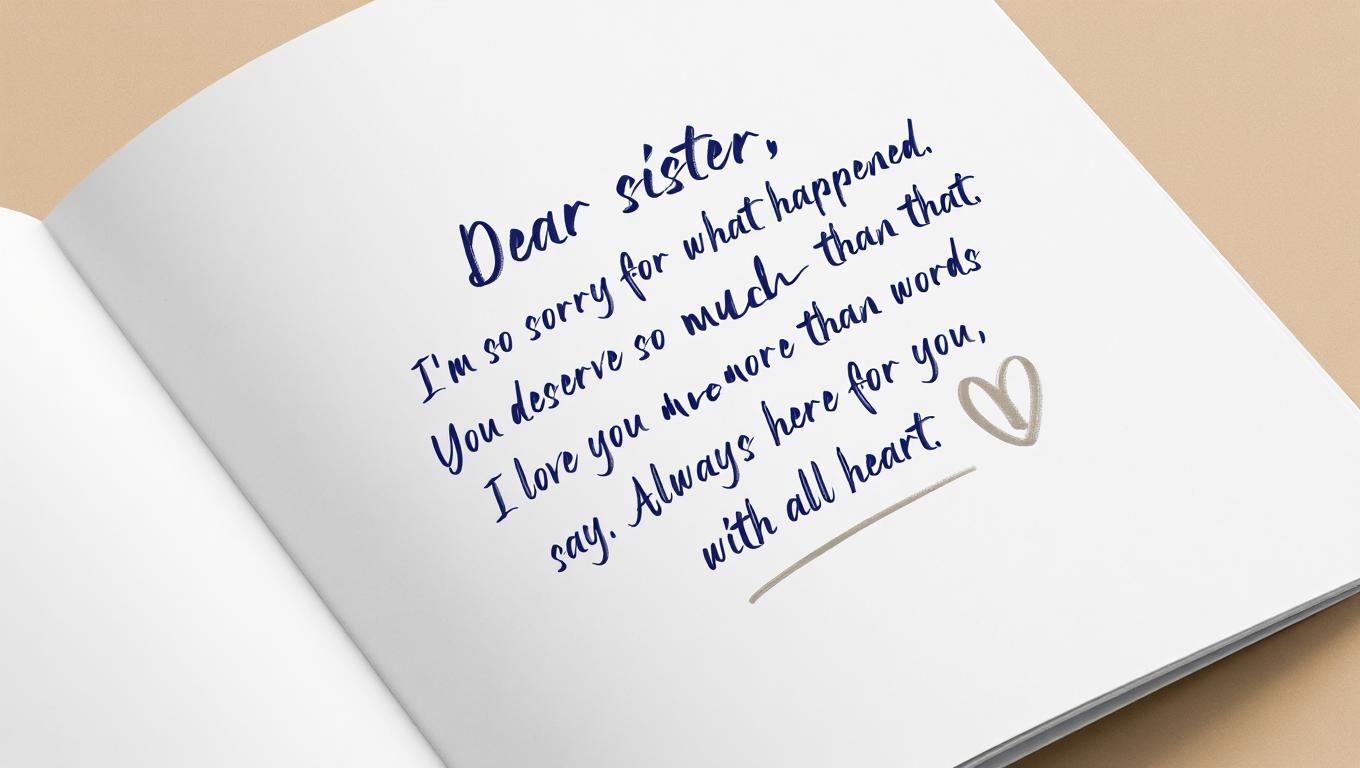 Dear sister,
I'm so sorry for what happened.
You deserve so much than that.
I love you more than words
say. Always here for you,
with all heart.